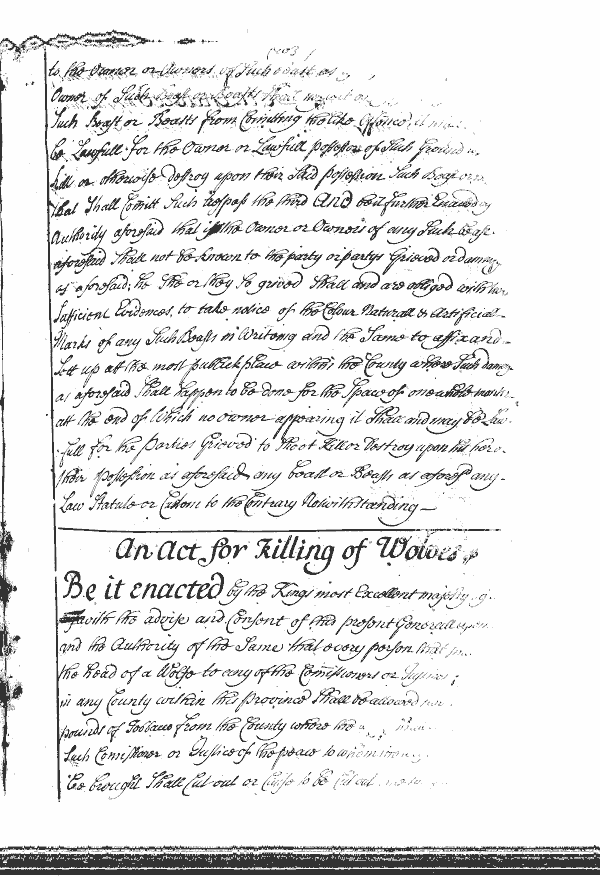 to the Owner or Owners of Such beast or
Owner of Such Beast or Beasts Shall
Such Beast or Beasts from Comitting the like Offence, it
be Lawfull for the Owner or Lawfull possessor of Such Ground
kill or otherwise destroy upon their Said possession Such Beast or
that Shall Comitt Such trespass the third And be it further Enacted by
Authority aforesaid that if the Owner or Owners of any Such beast
aforesaid Shall not be known to the party or partys Grieved or
as aforesaid, he She or they So grived Shall and are obliged with two
Sufficient Evidences, to take notice of the Colour Naturall & Artificial
Marks of any Such Beasts in Writeing and the Same to affix and
Sett up att the most publick place within the County where Such
as aforesaid Shall happen to be done for the Space of one whole
att the end of Which no owner appearing it Shall and may be Law
full for the Parties Grieved to Shoot Kill or Destroy upon his her or
their possession as aforesaid any beast or Beasts as aforesd any
Law Statute or Custom to the Contrary Notwithstanding
An Act for Killing of Wolves
Be it enacted by the Kings most Excellent majesty
with the advise and Consent of this present Generall
and the Authority of the Same that every person that
the head of a Wolfe to any of the Comissioners or
in any County within this Province Shall be allowed
pounds of Tobbaco from the County where the
Such Comissioner or Justice of the peace to whom
be brought Shall Cut out or Cause to be Cut out